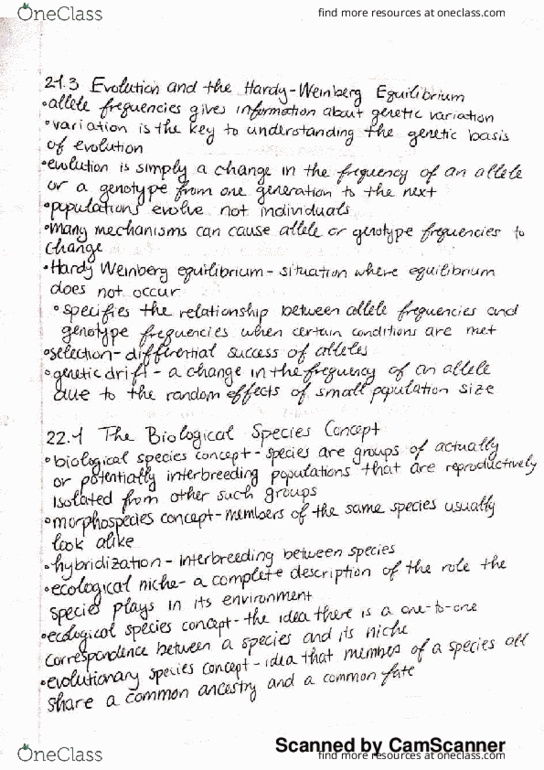 OneClass
find more resources at oneclass.com
21.3 Evolution and the Hardy-Weinberg Equilibrium
•allele frequencies gives information about genetic variation
•variation is the key to understanding the genetic basis
of evolution
•evolution is simply a change in the frequency of an allele
or a genotype from one generation to the next
•populations evolve not individuals
•Many mechanisms can cause allele or genotype frequencies to
change
•Hardy Weinberg equilibrium - situation where equilibrium
does not occur
•specifies the relationship between allele frequencies and
genotype frequencies when certain conditions are met
•selection - differential success of alleles
•genetic drift - a change in the frequency of an allele
due to the random effects of small population size
22.1 The Biological Species Concept
•biological species concept - species are groups of actually
or potentially interbreeding populations that are reproductively
isolated from other such groups
•morphospecies concept - members of the same species usually
look alike
•hybridization - interbreeding between species
•ecological niche - a complete description of the role the
species plays in its environment
•ecological species concept - the idea there is a one-to-one
correspondence between a species and its niche
•evolutionary species concept - idea that member of a species all
share a common ancestry and a common fate
Scanned by CamScanner
OneClass
find more resources at oneclass.com